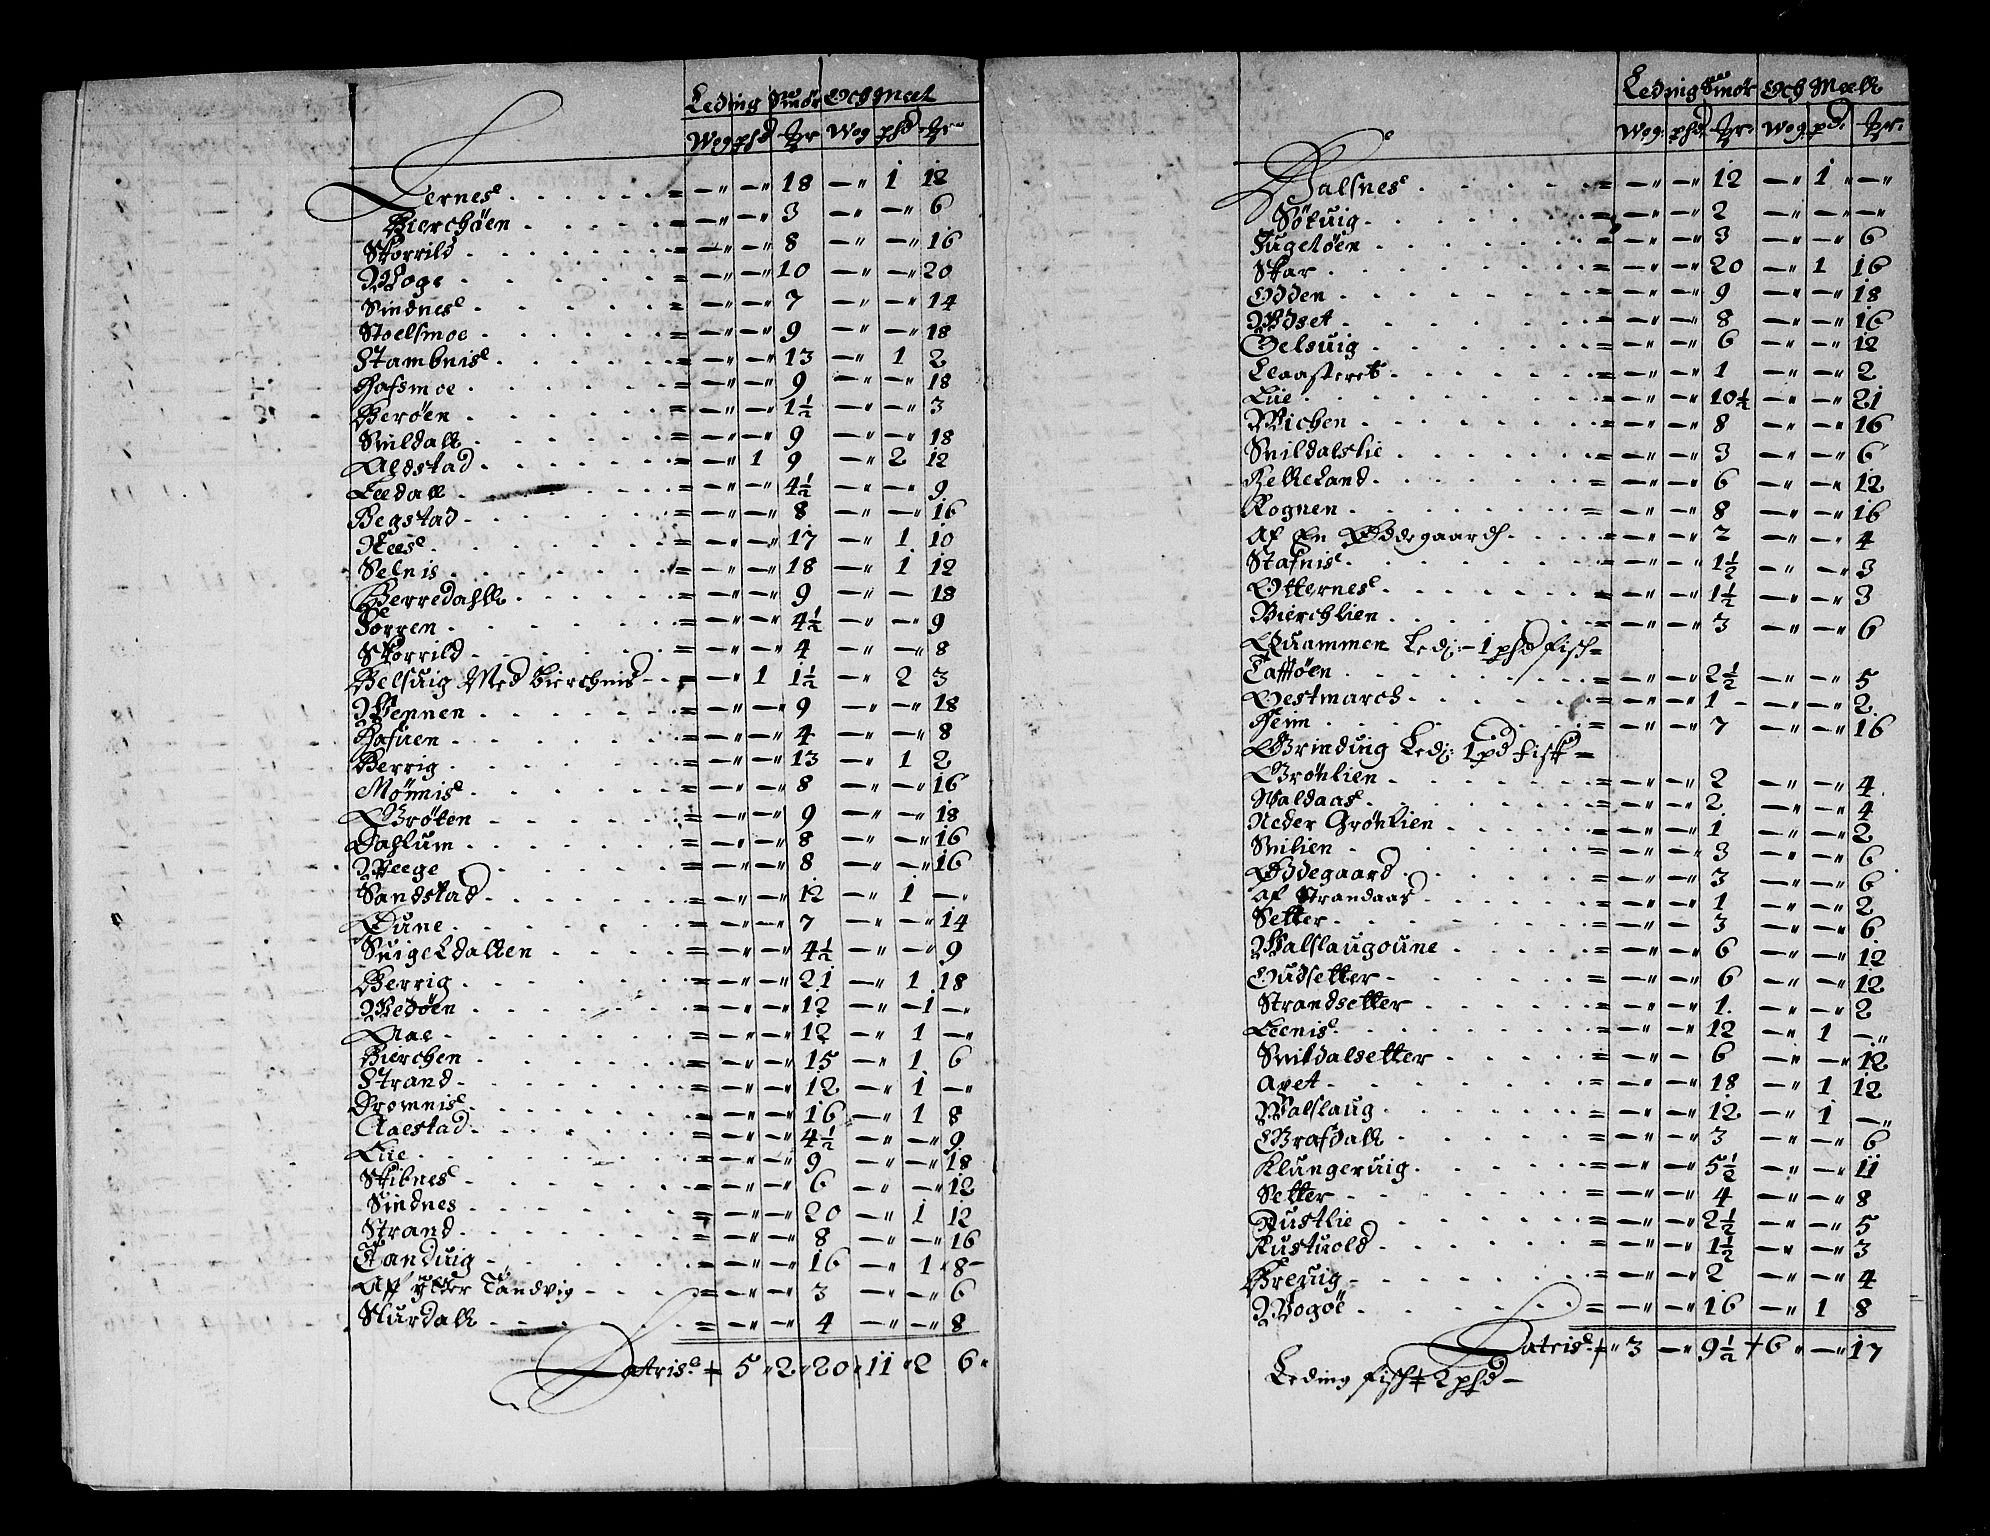 Leding Smör Och Meel
Wog phd ℔r Wog phd ℔r
Lernes = — " — " 18 — " 1 12
Bierchöen = — " — " 3 — " — " 6
Skorrild = — " — " 8 — " — " 16
Woge = — " — " 10 — " — " 20
Sindnes = — " — " 7 — " — " 14
Stoelsmoe = — " — " 9 — " — " 18
Stambnis = — " — " 13 — " 1 2
Hafsmoe = — " — " 9 — " — " 18
Beröen = — " — " 1½ — " — " 3
Snildall = — " — " 9 — " — " 18
Aldstad = — " 1 9 — " 2 12
Leedall = — " — " 4½ — " — " 9
Begstad = — " — " 8 — " — " 16
Nees = — " — " 17 — " 1 10
Selnis = — " — " 18 — " 1 12
Berredahll = — " — " 9 — " — 18
Sorren = — " — " 4½ — " — " 9
Skorrild = — " — " 4 — " — " 8
Belsuig Med bierchnis = — " 1 1½ — " 2 3
Wennen = — " — " 9 — " — " 18
Hafuen = — " — " 4 — " — " 8
Berrig = — " — " 13 — " 1 2
Mönnis = — " — " 8 — " — " 16
Gröten = — " — " 9 — " — " 18
Dahlum = — " — " 8 — " — " 16
Weege = — " — " 8 — " — " 16
Sandstad = — " — " 12 — " 1 — "
Oune = — " — " 7 — " — " 14
Snigeldallen = — " — " 4½ — " — " 9
Berrig = — " — " 21 — " 1 18
Wedöen = — " — " 12 — " 1 — "
Aae = — " — " 12 — " 1 — "
Bierchen = — " — " 15 — " 1 6
Strand = — " — " 12 — " 1 — "
Dromnis = — " — " 16 — " 1 8
Aaestad = — " — " 4½ — " — " 9
Lie = — " — " 9 — " — " 18
Skibnes = — " — " 6 — " — " 12
Sindnes = — " — " 20 — " 1 12
Strand = — " — " 8 — " — " 16
Tanduig = — " — " 16 — " 1 " 8 —
Aff ytter Tandvig = — " — " 3 — " — " 6
Slurdall = — " — " 4 — " — " 8
Lateris 5 " 2 " 20 " 11 " 2 6 "
Leding Smör Och Meell
Wog. phd. ℔r. Wog. pd. ℔r.
Halsnes = — " — " 12 — " 1 " — "
Sötuig = — " — " 2 — " — " — "
Fugeløen = — " — " 3 — " — " 6
Skar = — " — " 20 — " 1 16
Odden = — " — " 9 — " — " 18
Wdset = — " — " 8 — " — " 16
Gelsuig = — " — " 6 — " — " 12
= — " — " 1 — " — " 2
Lie = — " — " 10½ — " — " 21
Wichen = — " — " 8 — " — " 16
Snildalslie = — " — " 3 — " — " 6
Helleland = — " — " 6 — " — " 12
Rognen = — " — " 8 — " — " 16
Af En Ödegaard = — " — " 2 — " — " 4
Stafnis = — " — " 1½ — " — " 3
Otternes = — " — " 1½ — " — " 3
Bierchlien = — " — " 3 — " — " 6
Quammen Led: — 1 phd fisch =
Taftöen = — " — " 2½ — " — " 5
Oestmarch = — " — " 1 — — " — " 2
Heim = — " — " 7 — " — " 16
Grinduig Led: 1 pd fisk =
Grönlien = — " — " 2 — " — " 4
Waldaas = — " — " 2 — " — " 4
Neder Grönlien = — " — " 1 — " — " 2
Snilien = — " — " 3 — " — " 6
Ödegaard = — " — " 3 — " — " 6
Af Strandaas = — " — " 1 — " — " 2
Setter = — " — " 3 — " — " 6
Walslaugoune = — " — " 6 — " — " 12
Gudsetter = — " — " 6 — " — " 12
Strandsetter = — " — " 1 — " — " 2
Leenis = — " — " 12 — " 1 — "
Snildalsetter = — " — " 6 — " — " 12
Aret = — " — " 18 — " 1 12
Walslaug = — " — " 12 — " 1 — "
Grafdall = — " — " 3 — " — " 6
Klungeruig = — " — " 5½ — " — " 11
Setter = — " — " 4 — " — " 8
Rustlie = — " — " 2½ — " — " 5
Rustuold = — " — " 1½ — " — " 3
Breuig = — " — " 2 — " — " 4
Wogöe = — " — " 16 — " 1 8
Lateris " 3 — " 9½ 6 " — " 17
Leding fisch 2 phd —